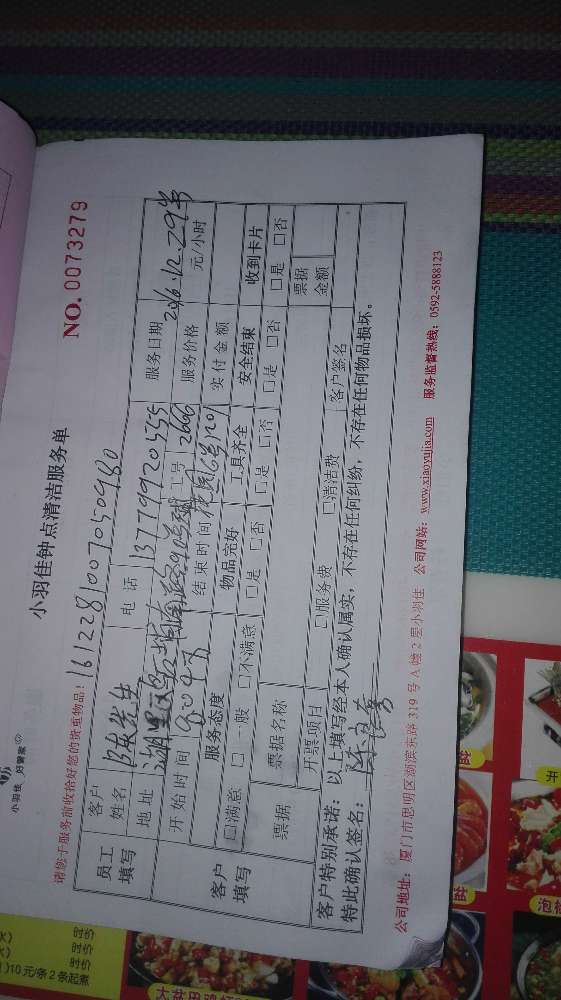 小羽佳 好管家
小羽佳钟点清洁服务单
请您于服务前收拾好您的贵重物品!
1612281007050980
NO. 0073279
员工填写
客户姓名 陈先生 电话 13779920555 服务日期 2016.12.29
地址 工号 2666 服务价格 元/小时
开始时间 结束时间 实付金额
客户填写
服务态度 物品完好 工具齐全 安全结束 收到卡片
□满意 □一般 □不满意 □是 □否 □是 □否 □是 □否 □是 □否
票据 票据名称 票据金额
开票项目 □服务费 □清洁费 客户签名
客户特别承诺：以上填写经本人确认属实，不存在任何纠纷，不存在任何物品损坏。
特此确认签名：
公司地址：厦门市思明区湖滨东路 319 号 A 幢 2 层小羽佳 公司网站：www.xiaoyujia.com 服务监督热线：0592-5888123
时价
时价
时价
)10 元/条 2 条起煮